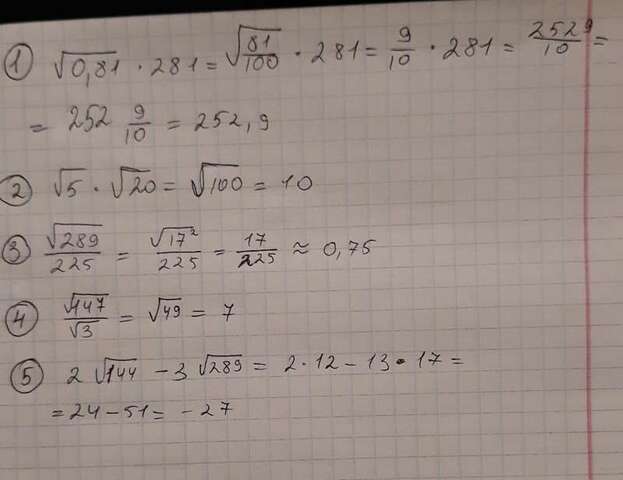 ① √0,81 · 281 = √81/100 · 281 = 9/10 · 281 = 2529/10 =
= 252 9/10 = 252,9
② √5 · √20 = √100 = 10
③ √289/225 = √17²/225 = 17/225 ≈ 0,75
④ √147/√3 = √49 = 7
⑤ 2√144 - 3√289 = 2·12 - 13·17 =
= 24 - 51 = -27